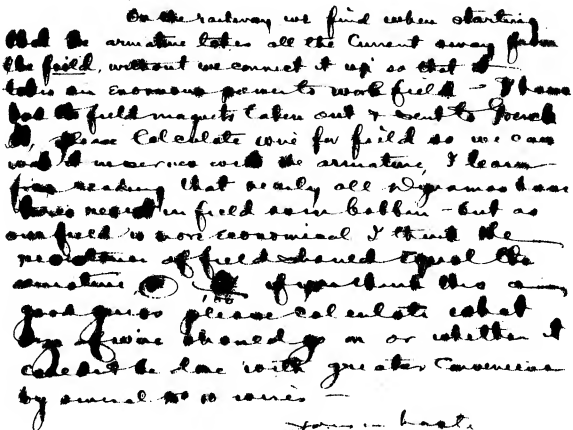 On the railway we find when starting
that the armature takes all the Current away from
the field, without we connect it up so that it
takes an Enormous power to work field – I have
had the field magnets taken out & sent to
please Calculate wire for field so we can
work it in series with the armature, I learn
from reading that nearly all Dynamos have
in field some bobbin – but as
our field is more Economical I think the
resistance of field should Equal the
armature, if you think this a
good guess please calculate what
size of wire should go on or whether it
could not be done with greater Convenience
by several in series –
Yours in haste